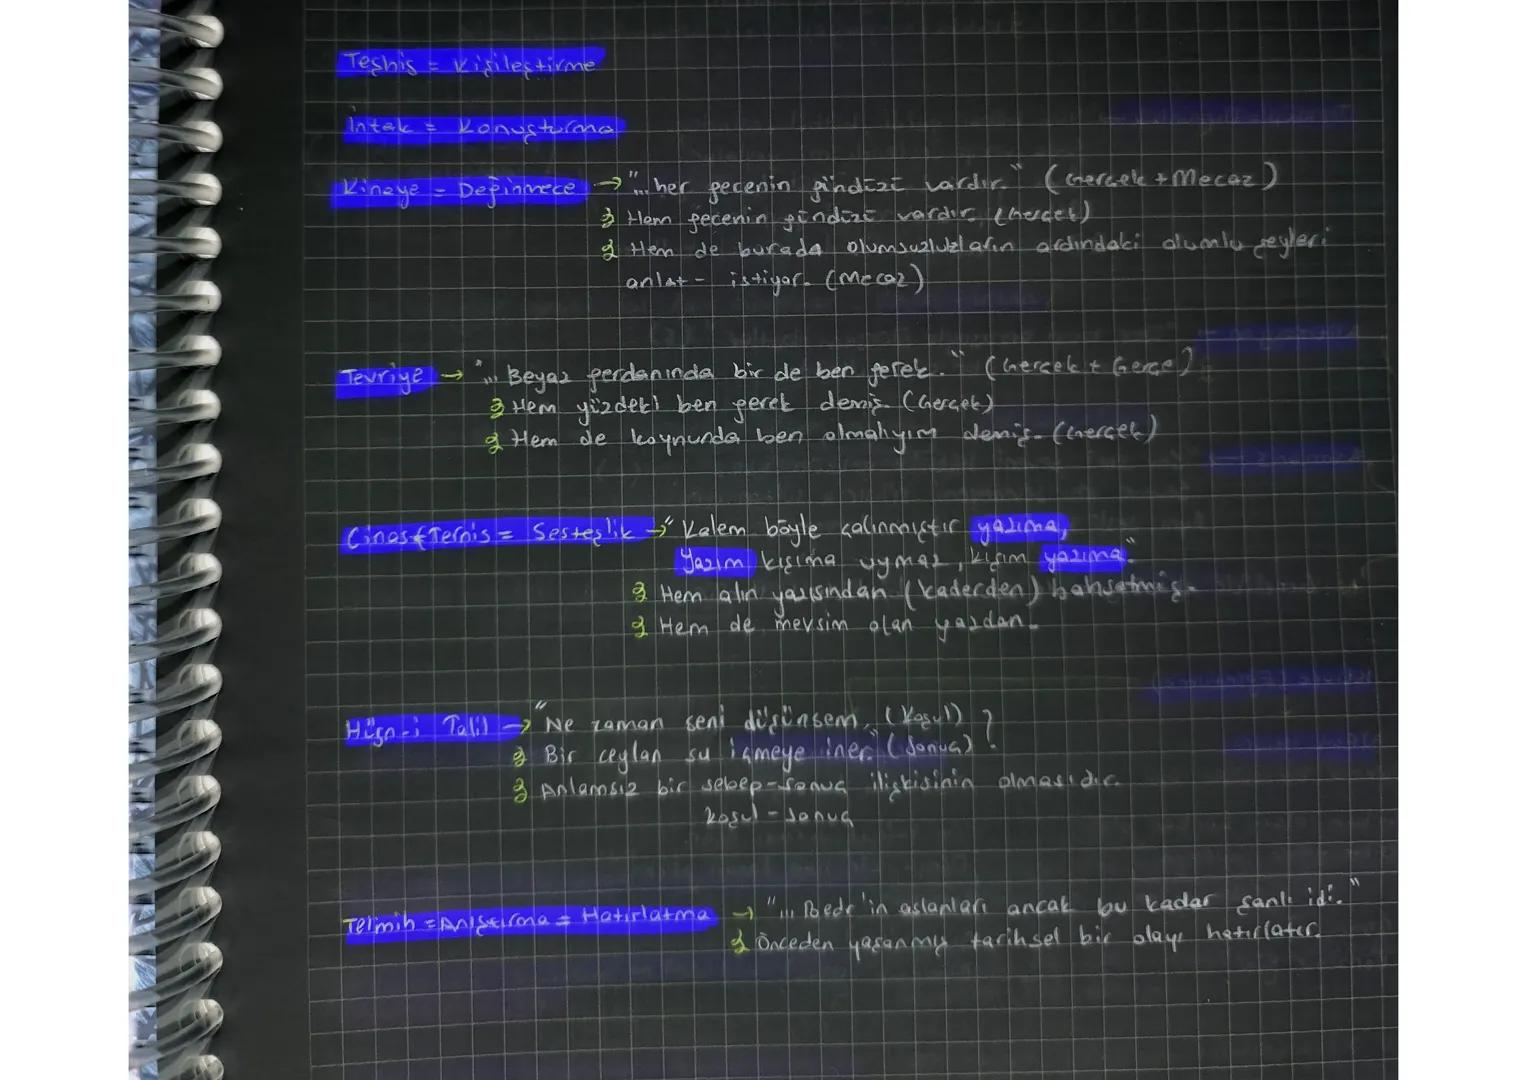 Teşhis = Kişileştirme
İntak = Konuşturma
Kinaye = Değinmece → "... her gecenin gündüzü vardır." (Gerçek + Mecaz)
Hem gecenin gündüzü vardır. (Gerçek)
Hem de burada olumsuzlukların ardındaki olumlu şeyleri
anlat- istiyor. (Mecaz)
Tevriye → "... Beyaz gerdanında bir de ben gerek." (Gerçek + Gerçe)
Hem yüzdeki ben gerek demiş. (Gerçek)
Hem de koynunda ben olmalıyım demiş. (Gerçek)
Cinas = Sesteşlik → "Kalem böyle çalınmıştır yazıma,
Yazım kışıma uymaz, kışım yazıma."
Hem alın yazısından (kaderden) bahsetmiş.
Hem de mevsim olan yazdan.
Hüsn-i Talil → "Ne zaman seni düşünsem, (Koşul) ?
Bir ceylan su içmeye iner." (Sonuç)
Anlamsız bir sebep-sonuç ilişkisinin olmasıdır.
koşul - sonuç
Telmih = Anıştırma = Hatırlatma → "... Bedr'in aslanları ancak bu kadar şanlı idi."
Önceden yaşanmış tarihsel bir olayı hatırlatır.